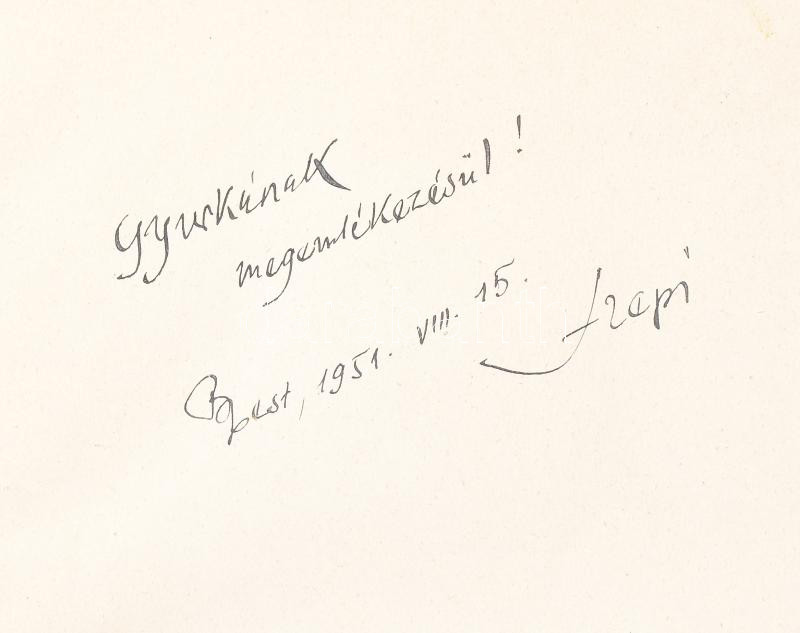 Gyurkának
megemlékezésül!
Bpest, 1951. VIII. 15.
Szepi